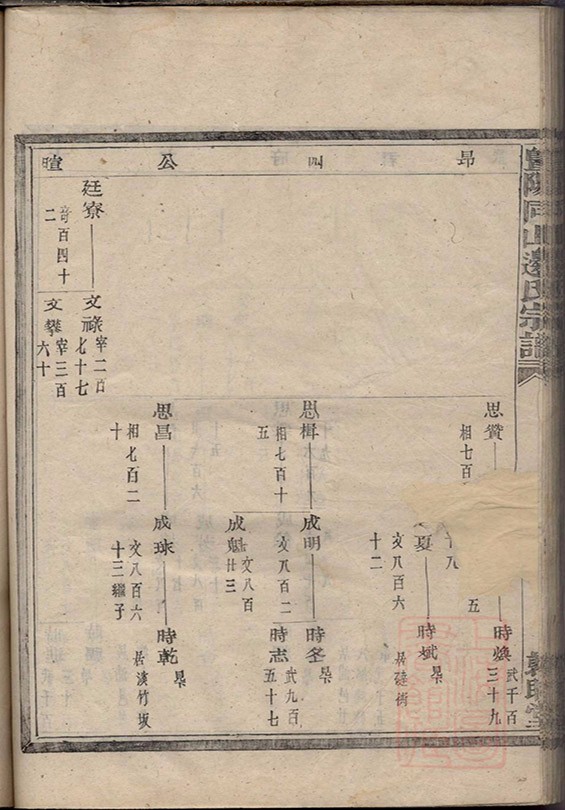 暨陽同山邊氏宗譜
昂
四
公
暄
思贊
相七百
五
時煥
武千百
三十九
夏
文八百六
十二
時斌
居磋街
思楫
相七百十
五
成明
文八百二
時冬
成魁
文八百
廿三
時志
武九百
五十七
思昌
相七百二
十
成球
文八百六
十三繼子
時乾
居溪竹坂
廷寮
奇百四十
二
文祿
宰二百
七十七
文攀
宰三百
六十